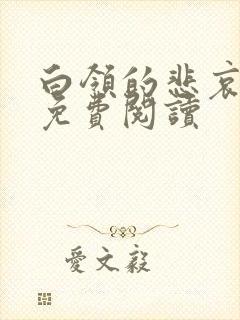 白領的悲哀
免費閱讀
愛文毅